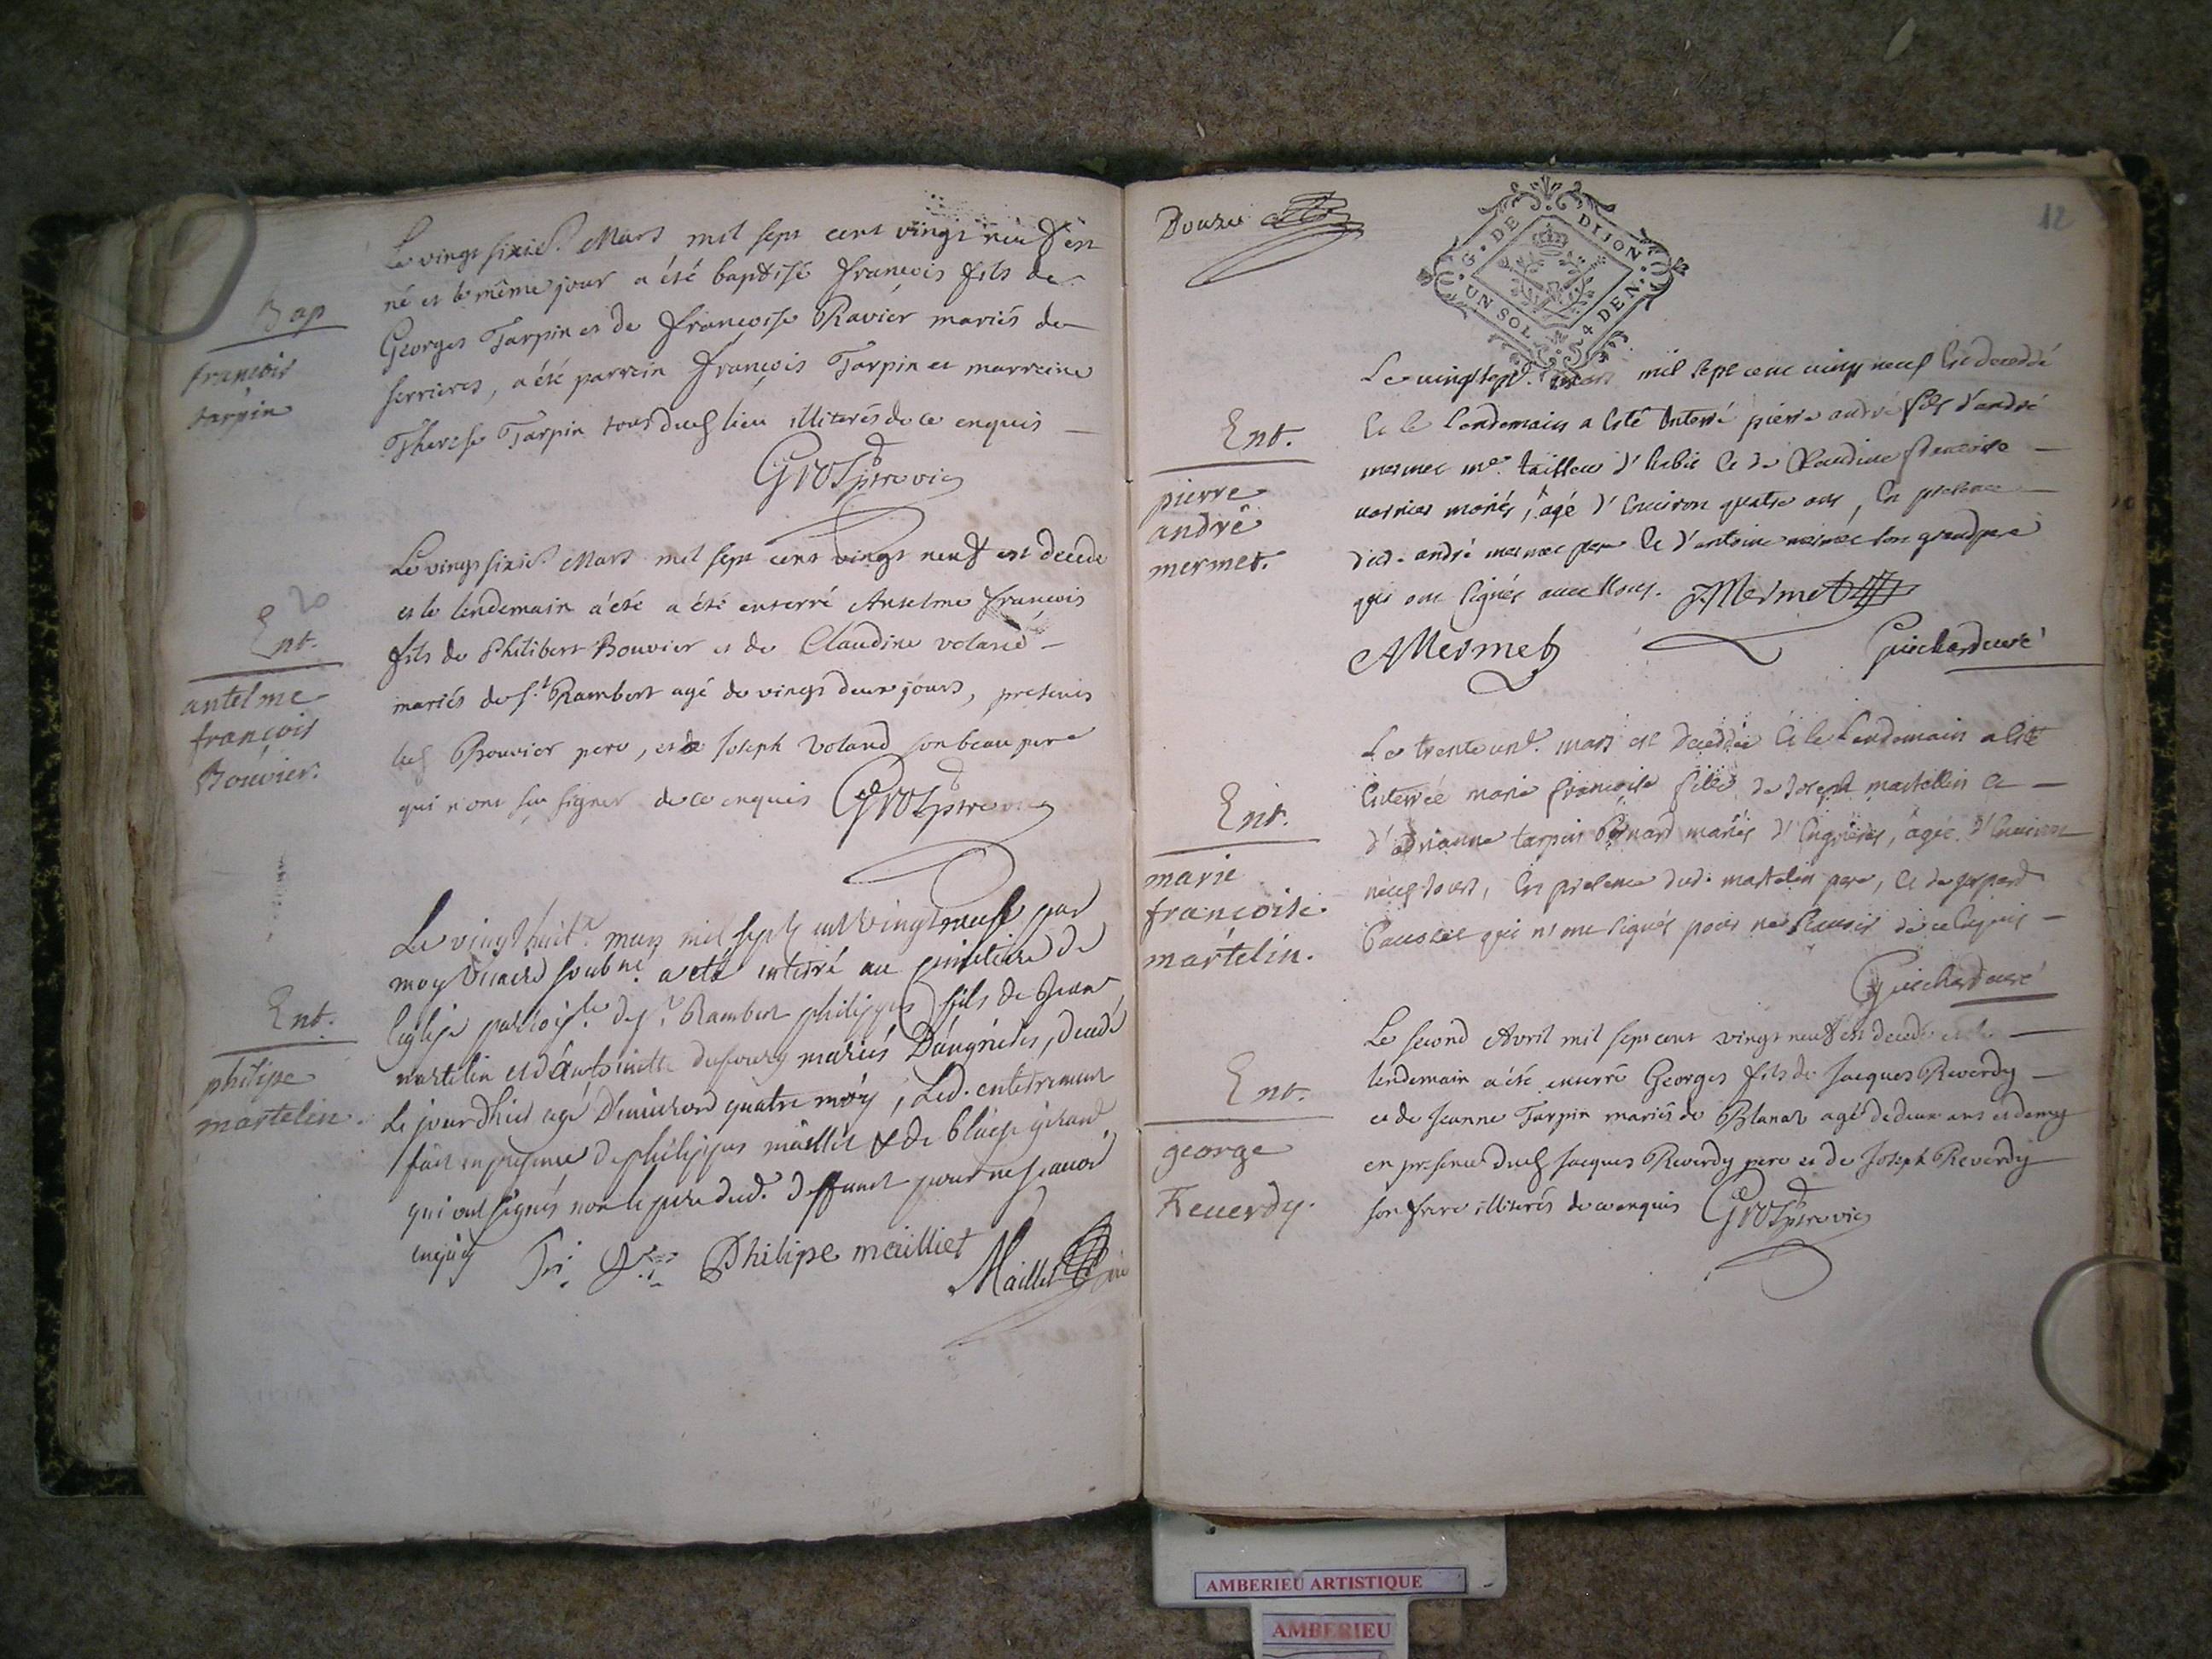 Bap
francois
tarpin
Le vingt sixie. Mars mil sept cent vingt neuf est
né et le même jour a été baptisé francois fils de
Georges Tarpin et de francoise Ravier mariés de
serrieres, a été parrein françois Tarpin et marreine
Therese Tarpin tous dud lieu illiterés de ce enquis
Grospre vic
20
Ent.
antelme
françois
Bouvier.
Le vingt sixie. Mars mil sept cent vingt neuf est decede
et le lendemain a été a été enterré Antelme francois
fils de Philibert Bouvier et de Claudine voland
mariés de st Rambert agé de vingt deux jours, presents
led Bouvier pere, et Joseph Voland son beau pere
qui n'ont sçu signer de ce enquis Grospre vic
Ent.
philipe
martelin.
Le vingt huit.e mars mil sept cent vingt neuf par
moy vicaire soubné a eté enterré au cimetiere de
leglise parrois.le de st Rambert philippes fils de Jean
martelin et d'Antoinette mariés D'angrieres, decedé
le jour d'hier agé D'environ quatre moy, Led. enterrement
fait en presence de philippes maillet & de blaise girand
qui ont signés non le pere dud. deffunct pour ne scavoir
enquis Philipe mailliet
Maillet
Douze
12
G. DE DIJON
UN SOL 4 DEN.
Ent.
pierre
andré
mermet.
Le vingt sept. mars mil sept cent vingt neuf Est decedé
Et le Lendemain a Esté Enterré pierre andré fils d'andré
mermet me. tailleur d'habit Et de Claudine francoise
mariés, âgé d'Environ quatre ans, En presence
dud. andré mermet pere Et d'antoine mermet son grand pere
qui ont signés avec Nous. Mermet
AMermet Guichard curé
Ent.
marie
françoise
martelin.
Le trente un. mars est Decedée Et le Lendemain a Esté
Enterrée marie françoise fille de Joseph martellin Et
d'adrianne tarpin mariés d'Engrieres, âgée d'Environ
neuf jours, En presence dud. martelin pere, Et de gaspard
qui n'ont signés pour ne scavoir de ce Enquis
Guichard curé
Ent.
george
Reuerdy.
Le second Avril mil sept cent vingt neuf est decedé et le
lendemain a été enterré Georges fils de Jacques Reverdy
et de Jeanne Tarpin mariés de Blanat agé de deux ans et demy
en presence dud Jacques Reverdy pere et de Joseph Reverdy
son frere illiterés de ce enquis Grospre vic
AMBERIEU ARTISTIQUE
AMBERIEU